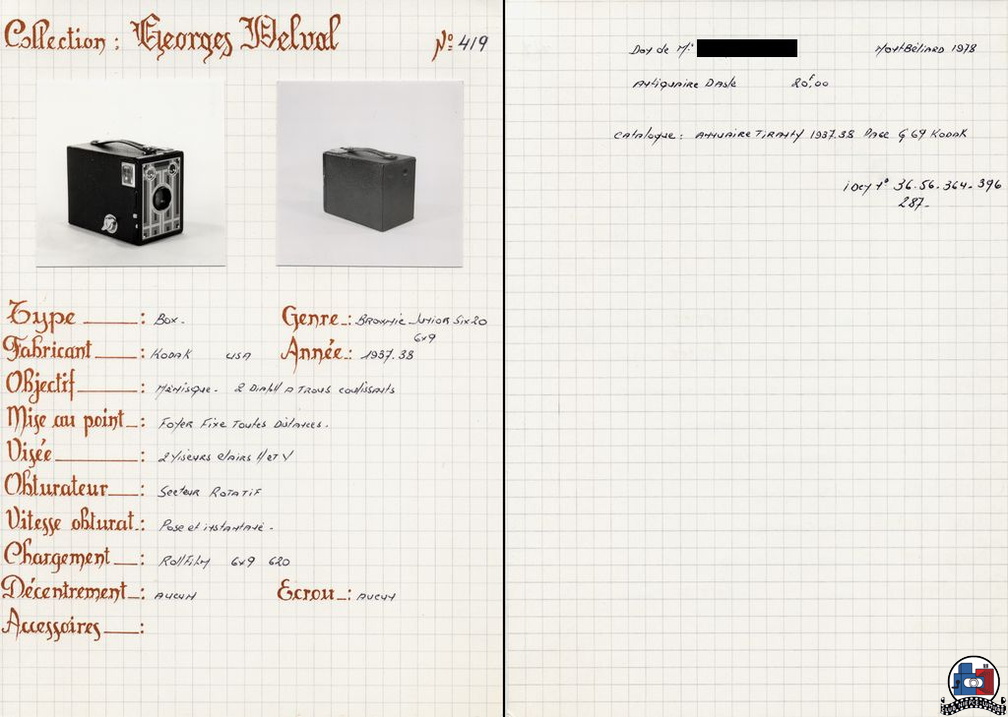 Collection : Georges Delval
Nº 419
Type : Box.
Genre : Brownie Junior Six 20
6x9
Fabricant : Kodak USA
Année : 1937.38
Objectif : Ménisque. 2 Diaph à Trous coulissants
Mise au point : Foyer Fixe Toutes Distances.
Visée : 2 Viseurs clairs H et V
Obturateur : Secteur Rotatif
Vitesse obturat. : Pose et instantané.
Chargement : Rollfilm 6x9 620
Décentrement : Aucun
Ecrou : Aucun
Accessoires :
Don de Mr Montbéliard 1978
Antiquaire Dasle 20F00
Catalogue : Annuaire Tiranty 1937.38 Page G 69 Kodak
Idem Nº 36.56.364.396
287.